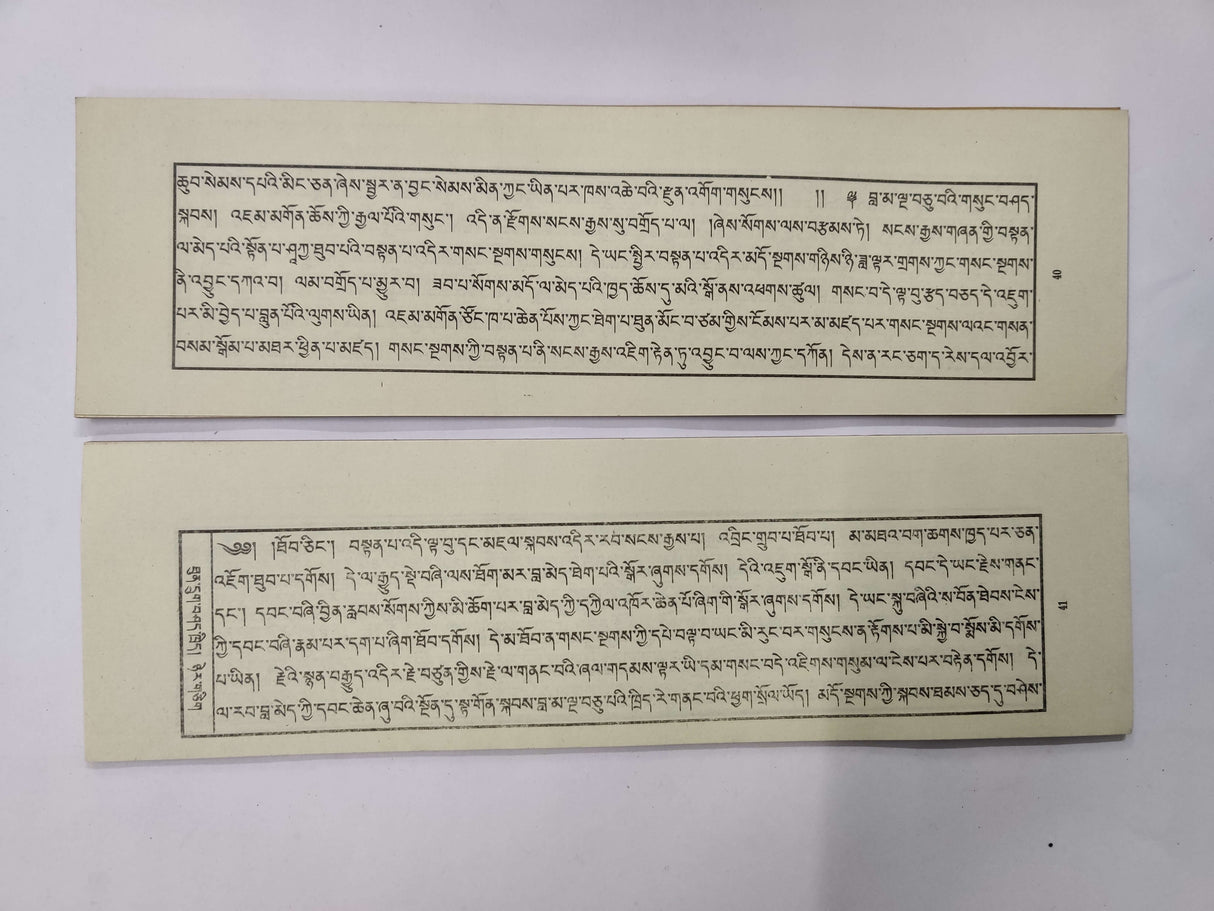 ཆུབ་སེམས་དཔའི་མིང་ཅན་ཞེས་སྦྱར་ན་བྱང་སེམས་མིན་ཀྱང་ཡིན་པར་ཁས་འཆེ་བའི་རྫུན་འགོག་གསུངས།། །། ༈ བླ་མ་ལྔ་བཅུ་བའི་གསུང་བཤད་
སྐབས། འཇམ་མགོན་ཆོས་ཀྱི་རྒྱལ་པོའི་གསུང་། འདི་ན་རྫོགས་སངས་རྒྱས་སུ་བགྲོད་པ་ལ། །ཞེས་སོགས་ལས་བརྩམས་ཏེ། སངས་རྒྱས་གཞན་གྱི་བསྟན་
ལ་མེད་པའི་སྟོན་པ་ཤཱཀྱ་ཐུབ་པའི་བསྟན་པ་འདིར་གསང་སྔགས་གསུངས། དེ་ཡང་སྤྱིར་བསྟན་པ་འདིར་མདོ་སྔགས་གཉིས་ཉི་ཟླ་ལྟར་གྲགས་ཀྱང་གསང་སྔགས་
ནི་འབྱུང་དཀའ་བ། ལམ་བགྲོད་པ་མྱུར་བ། ཟབ་པ་སོགས་མདོ་ལ་མེད་པའི་ཁྱད་ཆོས་དུ་མའི་སྒོ་ནས་འཕགས་ཚུལ། གསང་བ་དེ་ལྟ་བུ་རྩད་བཅད་དེ་འཇུག་
པར་མི་བྱེད་པ་བླུན་པོའི་ལུགས་ཡིན། འཇམ་མགོན་ཙོང་ཁ་པ་ཆེན་པོས་ཀྱང་ཐེག་པ་ཐུན་མོང་བ་ཙམ་གྱིས་ངོམས་པར་མ་མཛད་པར་གསང་སྔགས་ལའང་གསན་
བསམ་སྒོམ་པ་མཐར་ཕྱིན་པ་མཛད། གསང་སྔགས་ཀྱི་བསྟན་པ་ནི་སངས་རྒྱས་འཇིག་རྟེན་ཏུ་འབྱུང་བ་ལས་ཀྱང་དཀོན། དེས་ན་རང་ཅག་ད་རེས་དལ་འབྱོར་
༄༅། །ཐོབ་ཅིང་། བསྟན་པ་འདི་ལྟ་བུ་དང་མཇལ་སྐབས་འདིར་རབ་སངས་རྒྱས་པ། འབྲིང་གྲུབ་པ་ཐོབ་པ། མ་མཐའ་བག་ཆགས་ཁྱད་པར་ཅན་
འཇོག་ཐུབ་པ་དགོས། དེ་ལ་རྒྱུད་སྡེ་བཞི་ལས་ཐོག་མར་བླ་མེད་ཐེག་པའི་སྒོར་ཞུགས་དགོས། དེའི་འཇུག་སྒོ་ནི་དབང་ཡིན། དབང་དེ་ཡང་རྗེས་གནང་
དང་། དབང་བཞི་བྱིན་རླབས་སོགས་ཀྱིས་མི་ཆོག་པར་བླ་མེད་ཀྱི་དཀྱིལ་འཁོར་ཆེན་པོ་ཞིག་གི་སྒོར་ཞུགས་དགོས། དེ་ཡང་སྐུ་བཞིའི་ས་བོན་ཐེབས་ངེས་
ཀྱི་དབང་བཞི་རྣམ་པར་དག་པ་ཞིག་ཐོབ་དགོས། དེ་མ་ཐོབ་ན་གསང་སྔགས་ཀྱི་དཔེ་བལྟ་བ་ཡང་མི་རུང་བར་གསུངས་ན་རྟོགས་པ་མི་སྐྱེ་བ་སྨོས་མི་དགོས་
པ་ཡིན། རྗེའི་སྙན་བརྒྱུད་འདིར་རྗེ་བཙུན་གྱིས་རྗེ་ལ་གནང་བའི་ཞལ་གདམས་ལྟར་ཡི་དམ་གསང་བདེ་འཇིགས་གསུམ་ལ་ངེས་པར་བརྟེན་དགོས། དེ་
ལ་རབ་བླ་མེད་ཀྱི་དབང་ཆེན་ཞུ་བའི་སྔོན་དུ་སྟ་གོན་སྐབས་བླ་མ་ལྔ་བཅུ་པའི་ཁྲིད་རེ་གནང་བའི་ཕྱག་སྲོལ་ཡོད། མདོ་སྔགས་ཀྱི་སྐབས་ཐམས་ཅད་དུ་བཤེས་